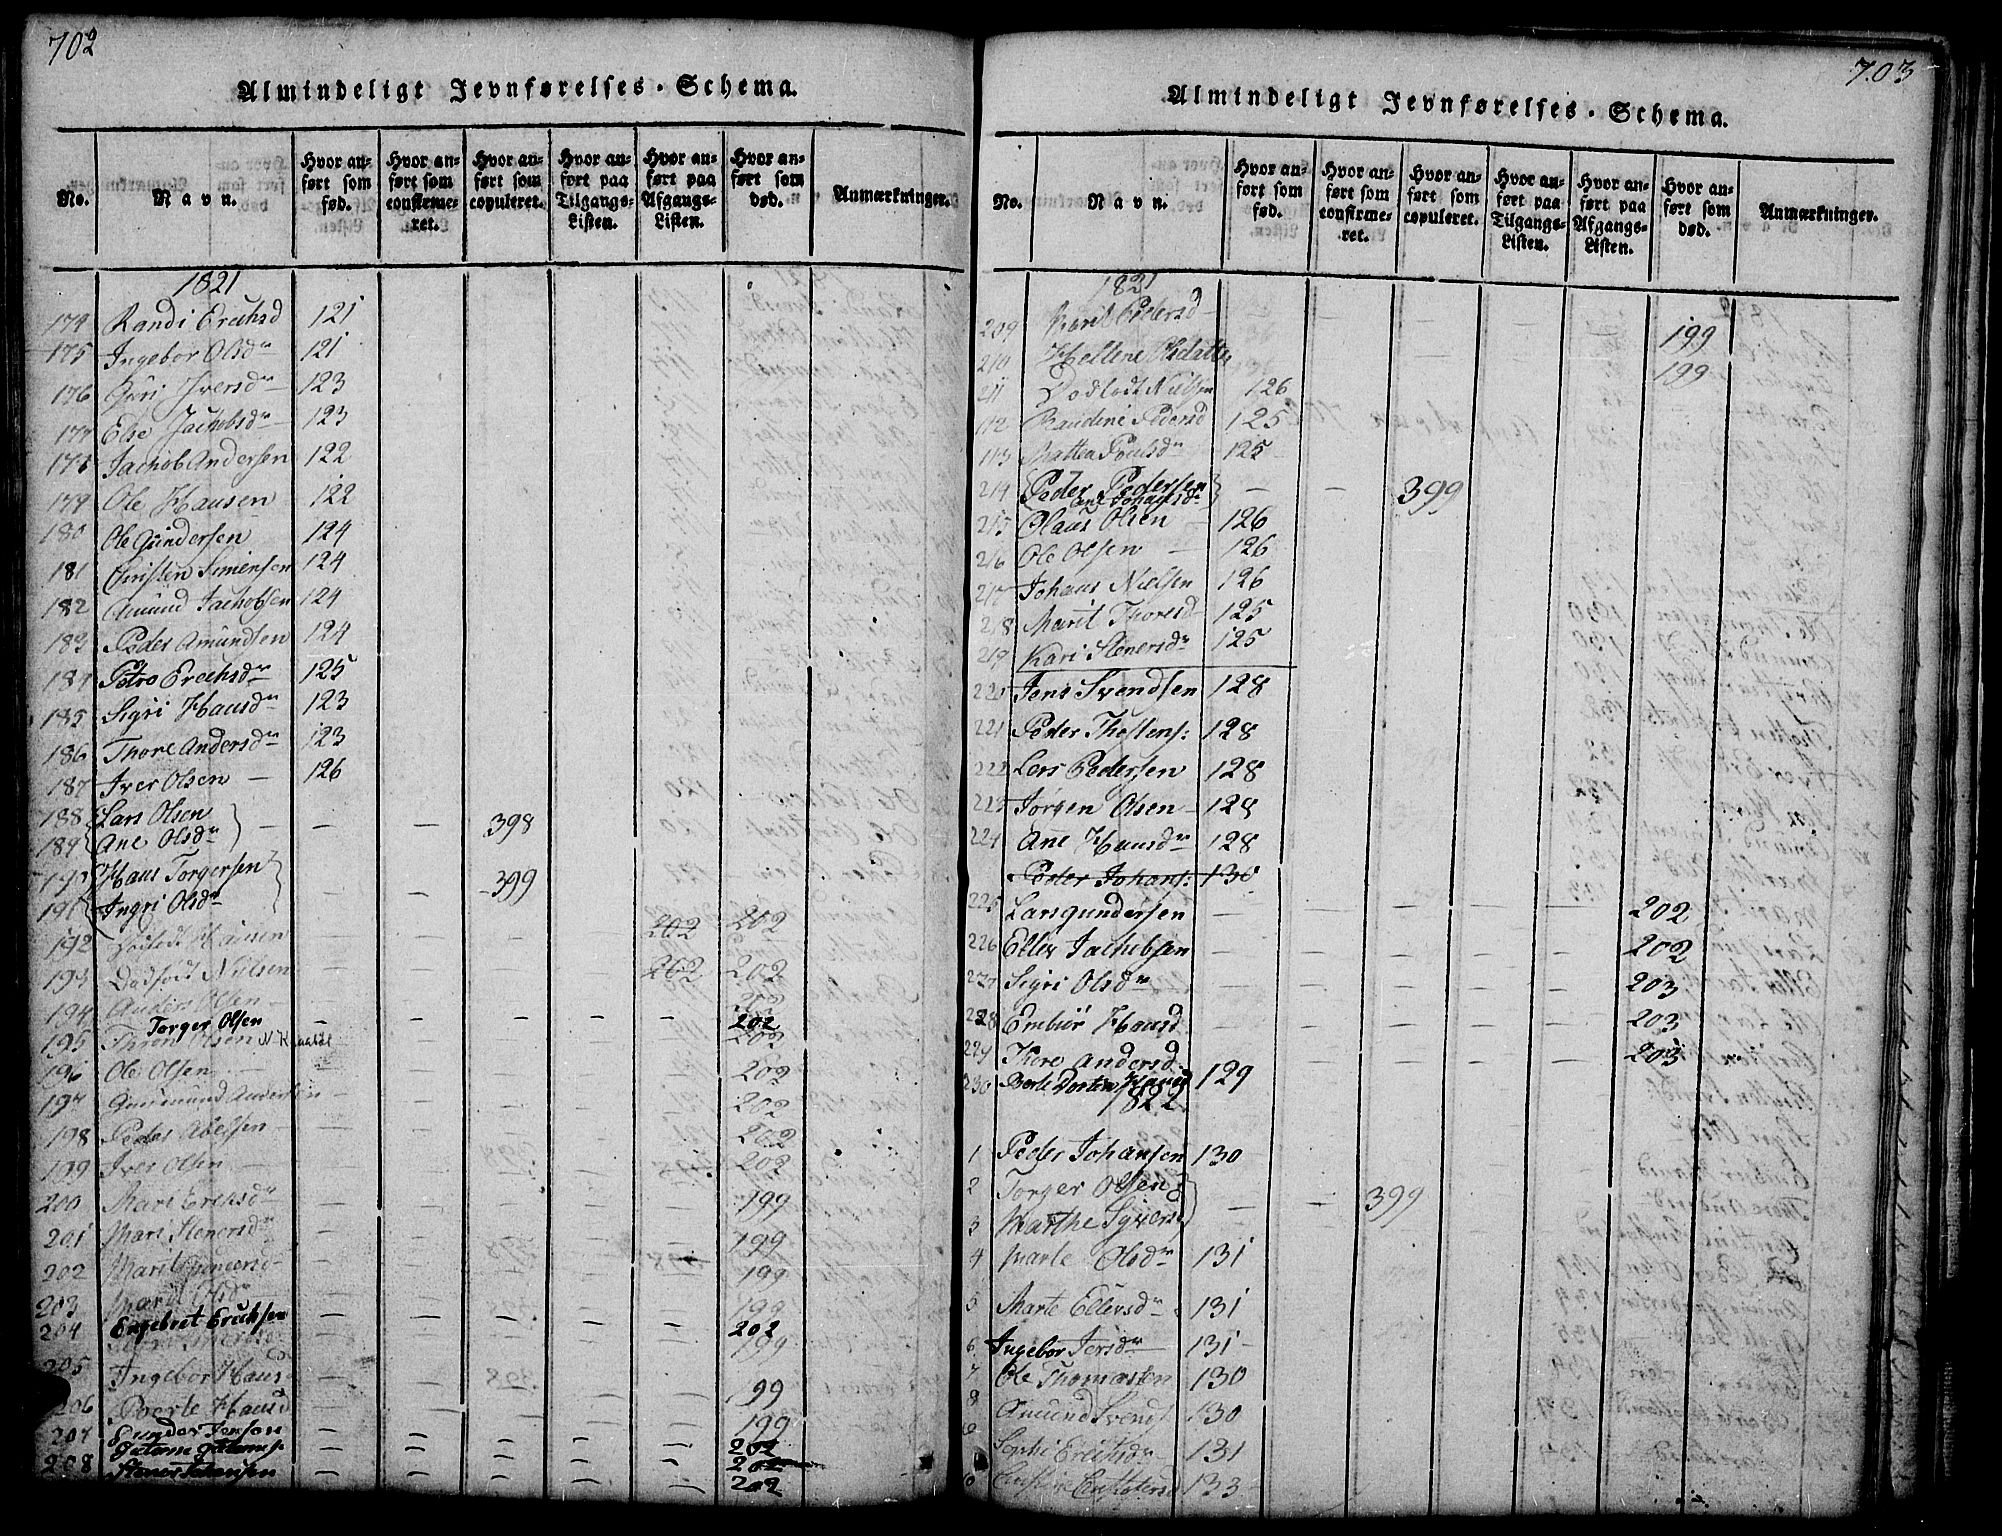 702
Almindeligt Jevnførelses-Schema.
No. Navn. Hvor anført som fød. Hvor anført som confirmeret. Hvor anført som copuleret. Hvor anført paa Tilgangs-Listen. Hvor anført paa Afgangs-Listen. Hvor anført som død. Anmærkninger.
1821
174 Randi Erichsd 121
175 Ingebor Olsdr 121
176 Guri Iversdr 123
177 Else Jachobsdr 123
178 Jachob Andersen 122
179 Ole Hansen 122
180 Ole Gundersen 124
181 Christen Simensen 124
182 Amund Jachobsen 124
183 Peder Amundsen 124
184 Petro Erichsdr 125
185 Sigri Hansdr 123
186 Thore Andersdr 123
187 Iver Olsen — 126
188 Lars Olsen
189 Ane Olsdr — — — 398
190 Hans Torgersen
191 Ingri Olsdr — — 399
192 — — — 202 202
193 Dødfødt Nielsen — — 202 202
194 Anders Olsen — 202
Torger Olsen — — — — — 202
195 Olsen 202
196 Ole Olsen — 202
197 Gudmund Andersen — 202
198 Peder Abelsen — 202
199 Iver Olsen — 202
200 Mari Erichsdr — 199
201 Mari Stenersdr — 199
202 Marit Gundersd — 199
203 Marit Olsdr 199
204 Engebret Erichsen — 202
199
205 Ingebor Hansd 199
206 Berte Hansd 199
207 Gunder Jensen — 202
202
208 Stener Johansen — 202
703
Almindeligt Jevnførelses-Schema.
No. Navn. Hvor anført som fød. Hvor anført som confirmeret. Hvor anført som copuleret. Hvor anført paa Tilgangs-Listen. Hvor anført paa Afgangs-Listen. Hvor anført som død. Anmærkninger.
1821
209 Marit Pedersd — 199
210 Hellene Olsdatter 199
211 Dødfødt Nielsen 126
112 Randine Pedersd 125
113 Mattea Poulsdr 125
214 Peder Pedersen — — 399
215 Olaus Olsen — 126
216 Ole Olsen — 126
217 Johans Nielsen 126
218 Marit Thoresd 125
219 Kari Stenersdr 125
220 Jens Svendsen 128
221 Peder Thostens: 128
222 Lars Pedersen 128
223 Jørgen Olsen — 128
224 Ane Hansdr 128
Peder Johans: 130
225 Lars Gundersen — — — — — 202
226 Eller Jachobsen 202
227 Sigri Olsdr — 203
228 Embiør Hansd 203
229 Thore Andersd 203
230 Berte Dorten Hansd 129
1822
1 Peder Johansen 130
2 Torger Olsen
3 Marthe Syversd — — 399
4 Marte Olsdr 131
5 Marte Ellersdr 131
6 Ingebor Iversdr 131
7 Ole Thomasen 130
8 Amund Svends 130
9 Sophi Erichsdr 131
10 133